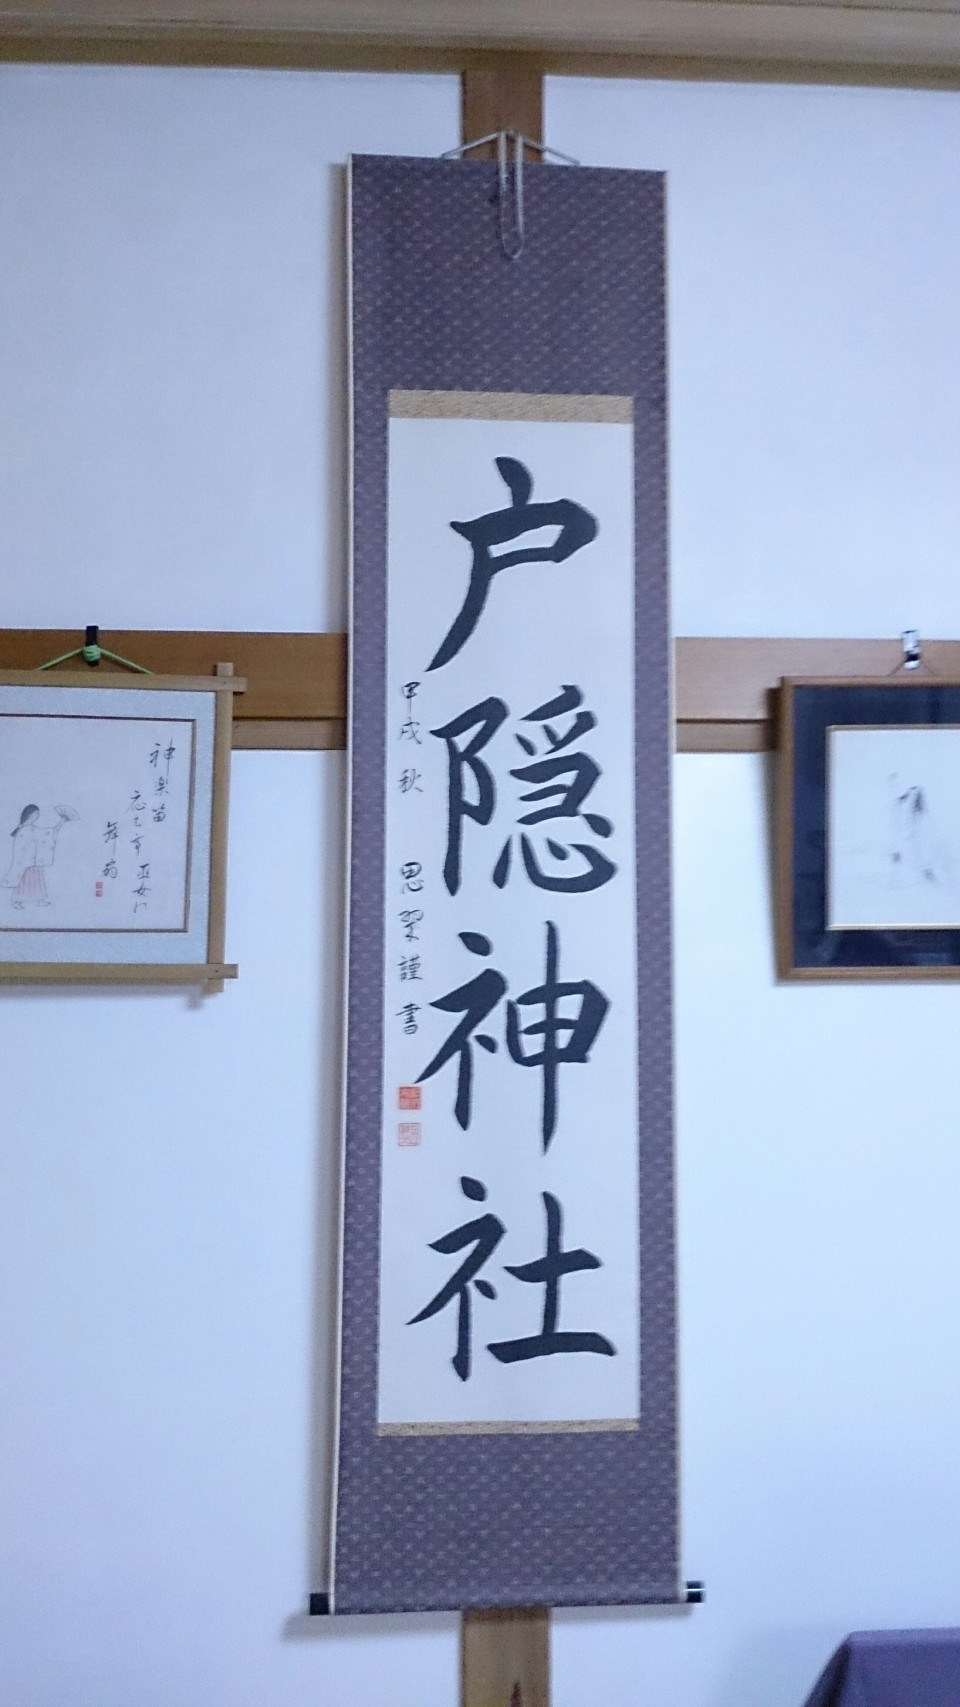 戸隠神社
甲戌 秋 思翠謹書
神楽笛
舞